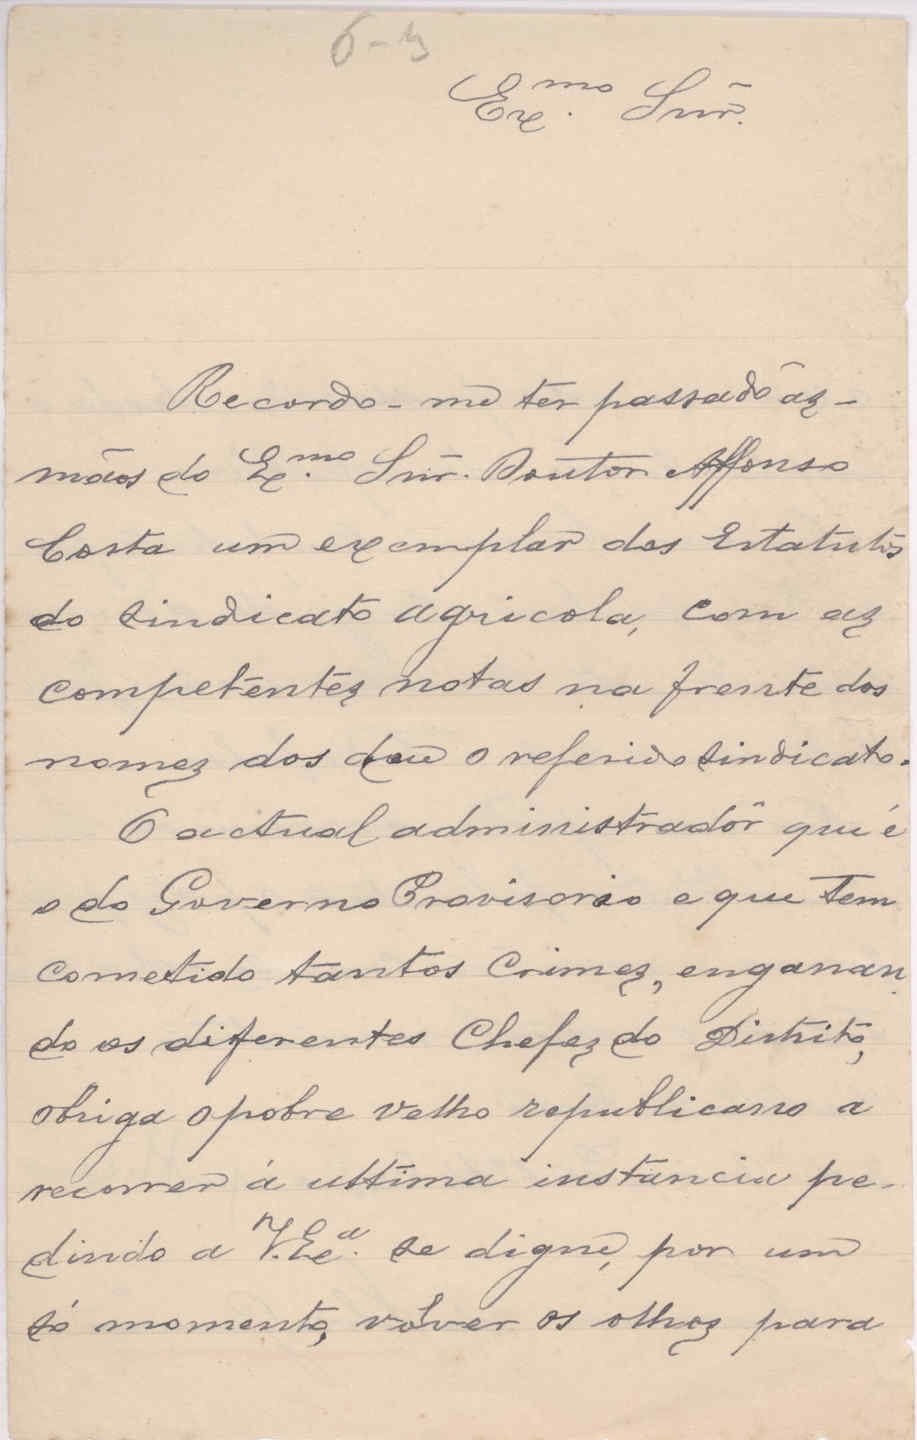 Ex.mo Snr.
Recordo-me ter passado ás-
mãos do Ex.mo Snr. Doutor Affonso
Costa um exemplar dos Estatutos
do Sindicato Agricola, com as
competentes notas na frente dos
nomes dos do o referido Sindicato.
O actual administradôr que é
o do Governo Provisorio e que tem
cometido tantos Crimes, enganan
do os diferentes Chefes do Distrito,
obriga o pobre velho republicano a
recorrer á ultima instancia pe-
dindo a V. Ex.a se digne, por um
só momento, volver os olhos para